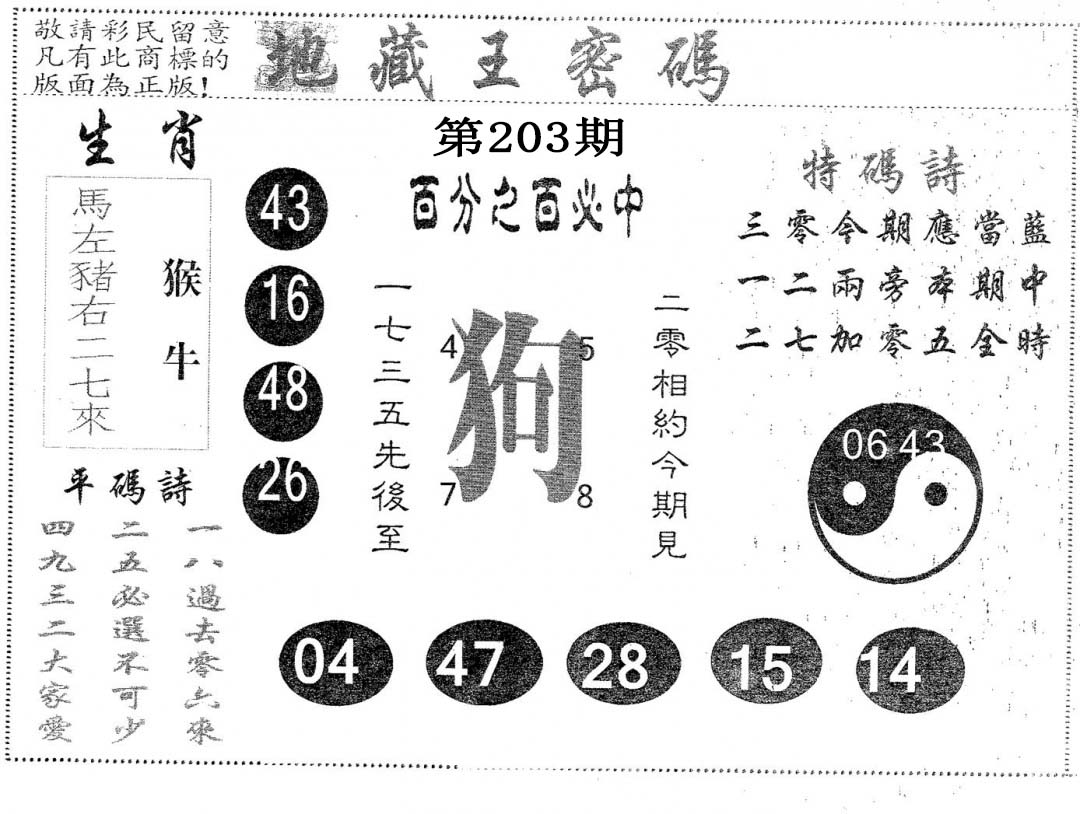 敬請彩民留意
凡有此商標的
版面為正版!
地藏王密碼
第203期
生肖
馬左豬右二七來
猴牛
43
16
48
26
百分之百必中
一七三五先後至
4
5
狗
7
8
二零相約今期見
特碼詩
三零今期應當藍
一二兩旁本期中
二七加零五全時
06 43
平碼詩
一八過去零六來
二五必選不可少
四九三二大家愛
04
47
28
15
14